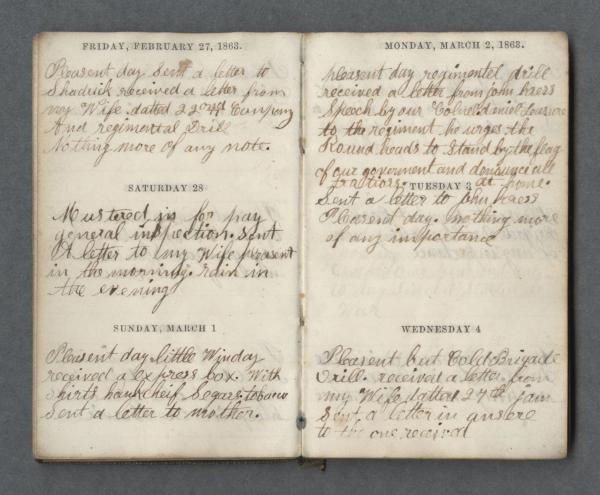 FRIDAY, FEBRUARY 27, 1863.
Pleasent day Sent a letter to
Shadrick received a letter from
my Wife datted 22ond Company
And regimental Drill
Nothing more of any note.
SATURDAY 28
Mustered in for pay
general inspection. Sent
A letter to my Wife pleasent
in the morning. rain in
the evening
SUNDAY, MARCH 1
Pleasent day little Winday
received a express box. With
shirts hankcheif Segars tobacco
Sent a letter to mother.
MONDAY, MARCH 2, 1863.
pleasent day regimentel drill
received a letter from John
Speech by our Colnel daniel
to the regiment he urges the
Round heads to Stand by the flag
of our goverment and denounce all
tractions. at home.
TUESDAY 3
Sent a letter to John
Pleasent day. nothing more
of any importance
WEDNESDAY 4
Pleasent but Cold Brigade
Drill. received a letter from
my Wife datted 24th
Sent a letter in ansere
to the one received